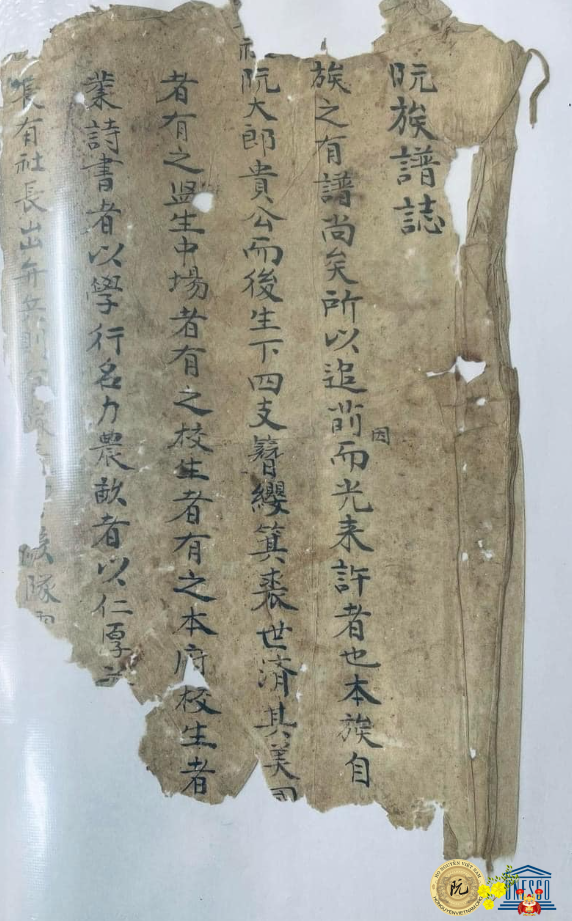 阮族譜誌
族之有譜尚矣所以追前因而光来許者也本族自
阮大郎貴公而後生下四支簪纓箕裘世済其美
者有之監生中場者有之校生者有之本府校生者
業詩書者以學行名力農畝者以仁厚
長有社長出弁兵則有 隊
HỌ NGUYỄN VIỆT NAM
阮
UNESCO